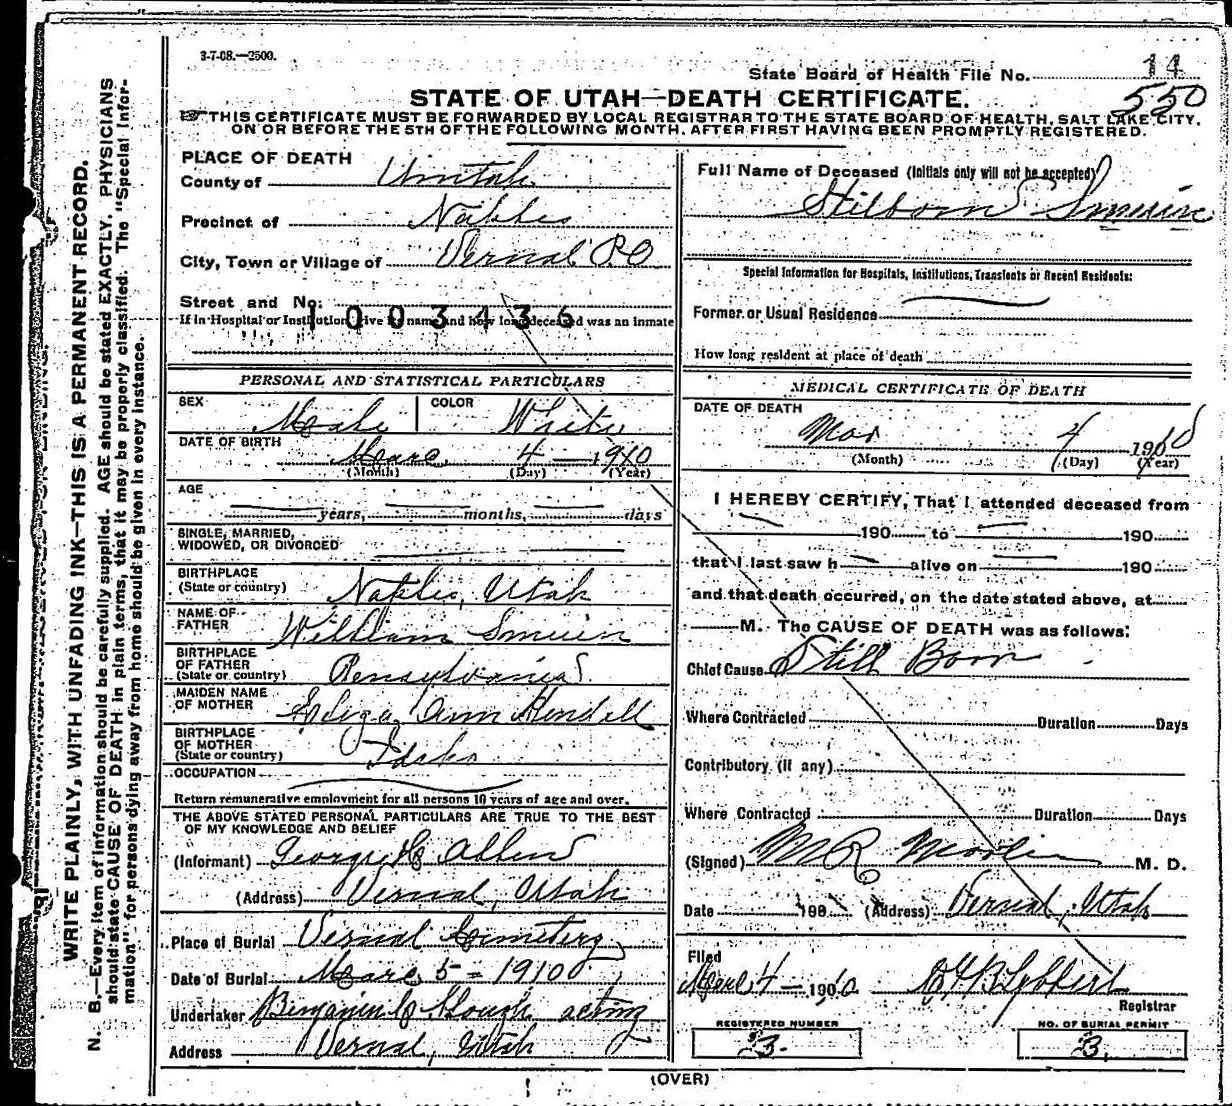 3-7-08.—2500.
State Board of Health File No. 14
550
STATE OF UTAH—DEATH CERTIFICATE.
THIS CERTIFICATE MUST BE FORWARDED BY LOCAL REGISTRAR TO THE STATE BOARD OF HEALTH, SALT LAKE CITY,
ON OR BEFORE THE 5TH OF THE FOLLOWING MONTH, AFTER FIRST HAVING BEEN PROMPTLY REGISTERED.
WRITE PLAINLY, WITH UNFADING INK—THIS IS A PERMANENT RECORD.
N. B.—Every item of information should be carefully supplied. AGE should be stated EXACTLY. PHYSICIANS
should state CAUSE OF DEATH in plain terms, that it may be properly classified. The "Special Infor-
mation" for persons dying away from home should be given in every instance.
PLACE OF DEATH
County of Uintah
Precinct of Naples
City, Town or Village of Vernal P.O
Street and No:
1003436
If in Hospital or Institution give its name and how long deceased was an inmate
PERSONAL AND STATISTICAL PARTICULARS
SEX Male COLOR White
DATE OF BIRTH Marc 4 — 1910
(Month) (Day) (Year)
AGE
years, months, days
SINGLE, MARRIED,
WIDOWED, OR DIVORCED
BIRTHPLACE
(State or country) Naples, Utah
NAME OF
FATHER William Smuin
BIRTHPLACE
OF FATHER
(State or country) Pensylvania
MAIDEN NAME
OF MOTHER Eliza Ann Kendell
BIRTHPLACE
OF MOTHER
(State or country) Idaho
OCCUPATION
Return remunerative employment for all persons 10 years of age and over.
THE ABOVE STATED PERSONAL PARTICULARS ARE TRUE TO THE BEST
OF MY KNOWLEDGE AND BELIEF
(Informant) George Allen
(Address) Vernal, Utah
Place of Burial Vernal Cemetery
Date of Burial Marc 5 = 1910
Undertaker Benjamin Slough acting
Address Vernal, Utah
Full Name of Deceased (Initials only will not be accepted)
Stilborn Smuin
Special Information for Hospitals, Institutions, Transients or Recent Residents:
Former or Usual Residence
How long resident at place of death
MEDICAL CERTIFICATE OF DEATH
DATE OF DEATH
Mar 4 1910
(Month) (Day) (Year)
I HEREBY CERTIFY, That I attended deceased from
190 to 190
that I last saw h alive on 190
and that death occurred, on the date stated above, at
M. The CAUSE OF DEATH was as follows:
Chief Cause Still Born
Where Contracted Duration Days
Contributory (if any)
Where Contracted Duration Days
(Signed) M. D.
Date 190 (Address) Vernal, Utah
Filed
4 — 1910
Registrar
REGISTERED NUMBER
23.
NO. OF BURIAL PERMIT
3.
(OVER)